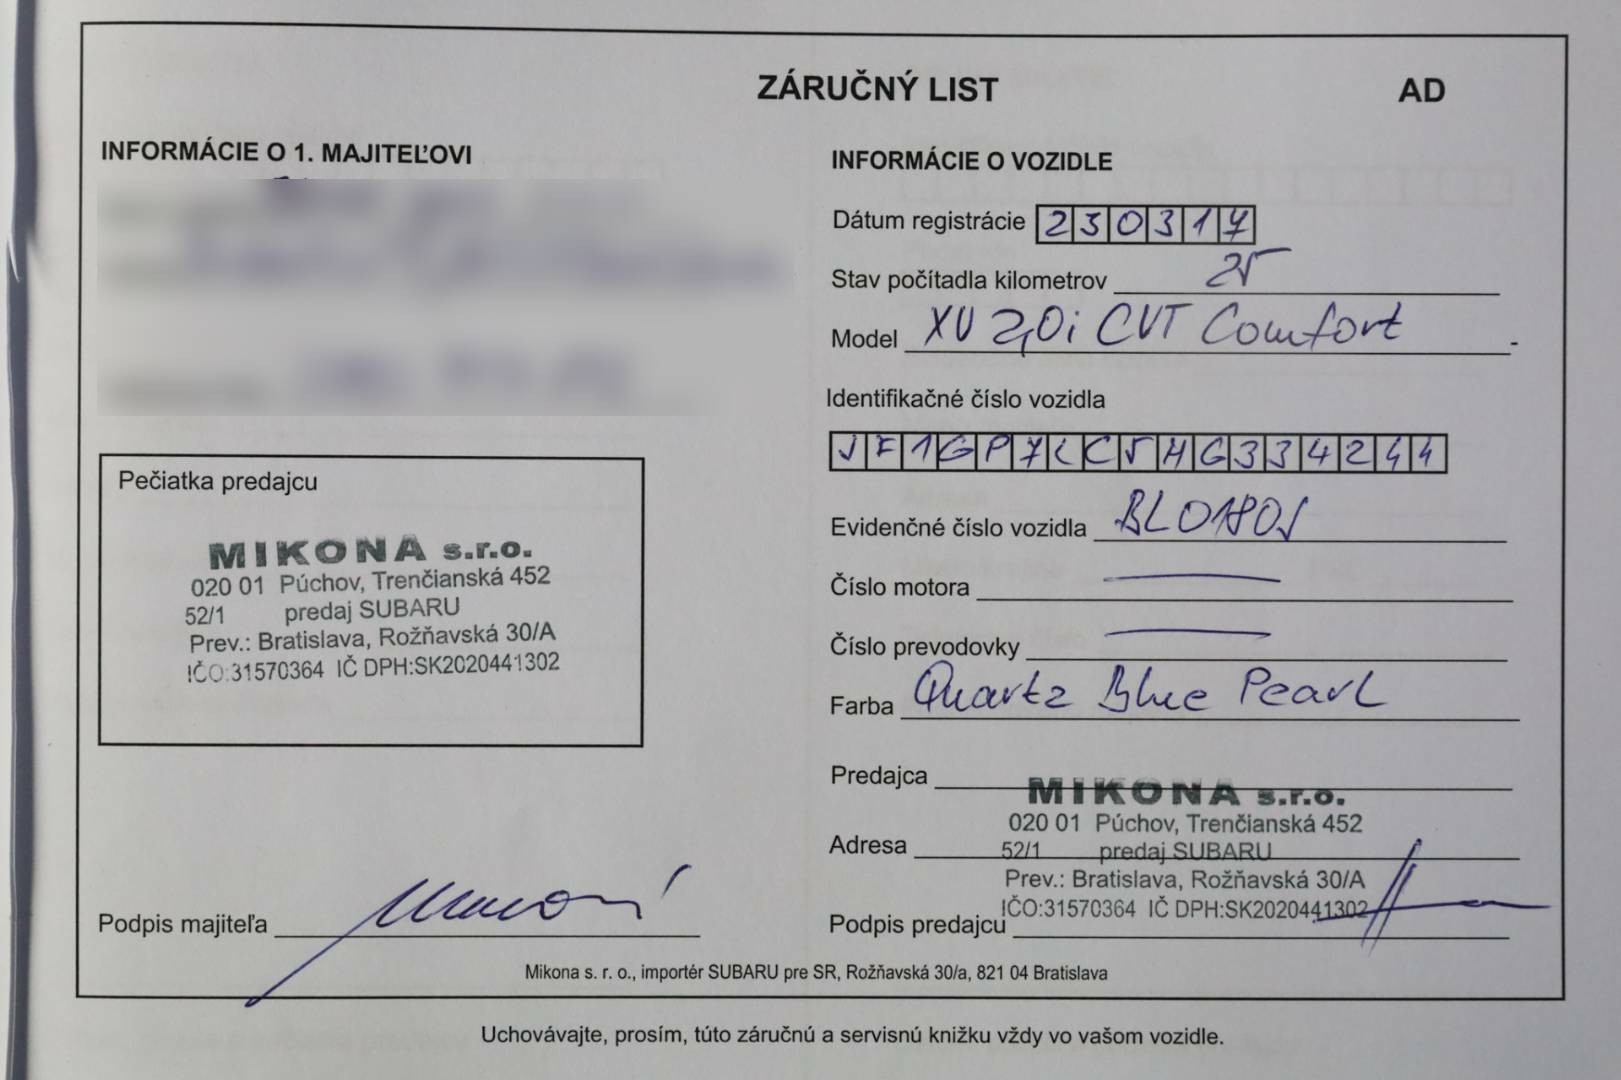 ZÁRUČNÝ LIST
AD
INFORMÁCIE O 1. MAJITEĽOVI
Pečiatka predajcu
MIKONA s.r.o.
020 01 Púchov, Trenčianska 452
52/1 predaj SUBARU
Prev.: Bratislava, Rožňavská 30/A
IČO:31570364 IČ DPH:SK2020441302
Podpis majiteľa
INFORMÁCIE O VOZIDLE
Dátum registrácie 230317
Stav počítadla kilometrov 25
Model XV 2,0i CVT Comfort
Identifikačné číslo vozidla
JF1GP7LC5HG334244
Evidenčné číslo vozidla
Číslo motora
Číslo prevodovky
Farba Quartz Blue Pearl
Predajca
MIKONA s.r.o.
020 01 Púchov, Trenčianska 452
Adresa
52/1 predaj SUBARU
Prev.: Bratislava, Rožňavská 30/A
IČO:31570364 IČ DPH:SK2020441302
Podpis predajcu
Mikona s. r. o., importér SUBARU pre SR, Rožňavská 30/a, 821 04 Bratislava
Uchovávajte, prosím, túto záručnú a servisnú knižku vždy vo vašom vozidle.